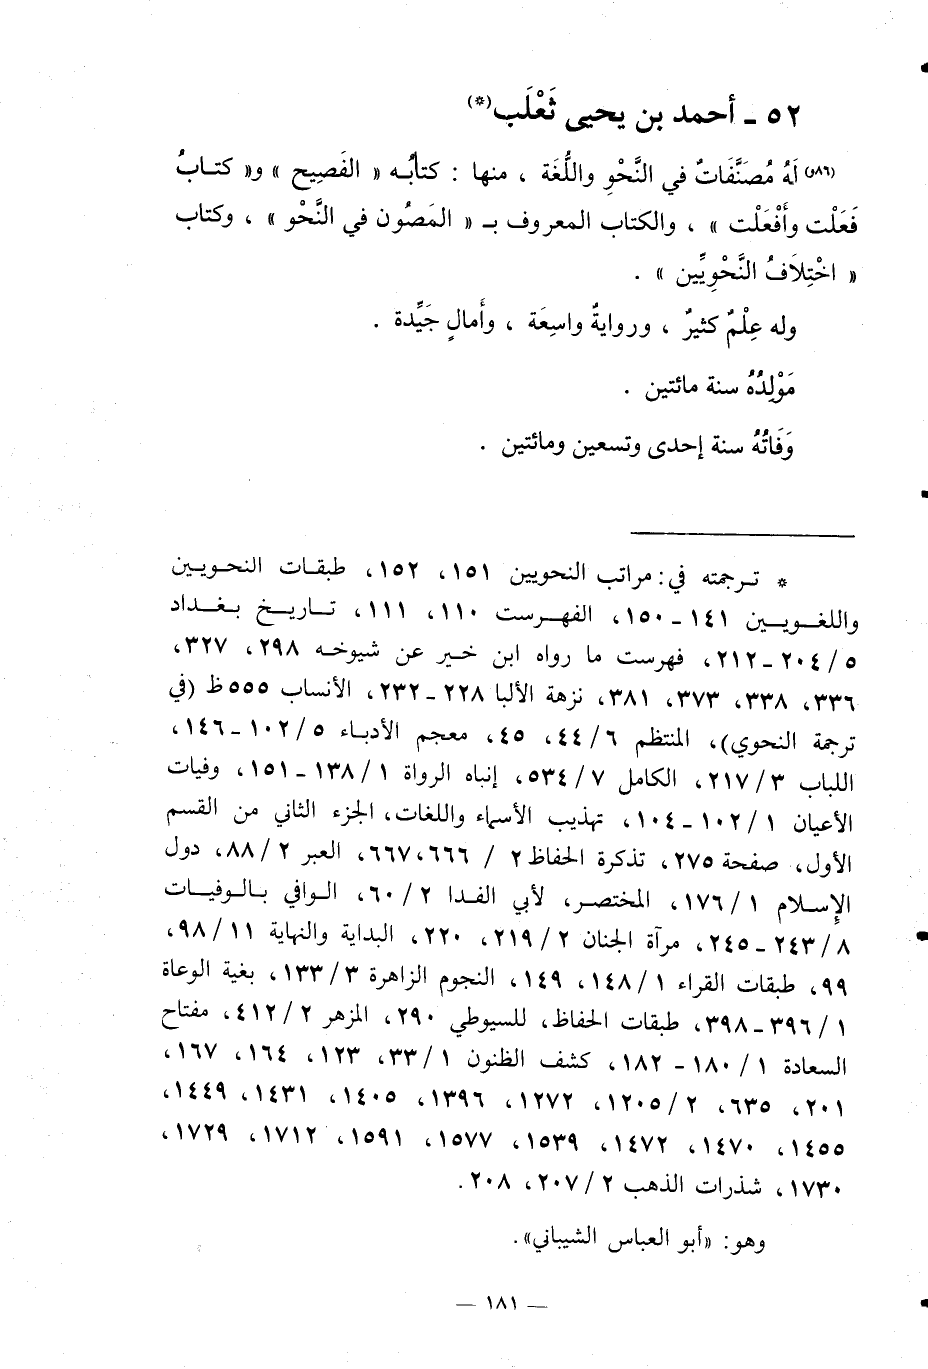 ٥٢ ـ أحمد بن يحيى ثَعْلَب(*)
(٨٦ظ) لَهُ مُصَنَّفَاتٌ في النَّحْوِ واللُّغَة ، منها : كتابُـه « الفَصِيح » و« كتـابُ
فَعَلْت وأَفْعَلْت » ، والكتاب المعروف بـ « المَصُون في النَّحْو » ، وكتاب
« اخْتِلَافُ النَّحْوِيِّين » .
وله عِلْمٌ كثيرٌ ، وروايةٌ واسِعَة ، وأَمالٍ جَيِّدة .
مَوْلِدُهُ سنة مائتين .
وَفَاتُهُ سنة إحدى وتسعين ومائتين .
* تـرجمته في: مراتب النحويين ١٥١، ١٥٢، طبقـات النحـويـين
واللغـويـين ١٤١ـ١٥٠، الفهـرست ١١٠، ١١١، تـاريـخ بـغـداد
٥/٢٠٤ـ٢١٢، فهرست ما رواه ابن خـير عن شيوخـه ٢٩٨، ٣٢٧،
٣٣٦، ٣٣٨، ٣٧٣، ٣٨١، نزهة الألبا ٢٢٨ـ٢٣٢، الأنساب ٥٥٥ظ (في
ترجمة النحوي)، المنتظم ٦/٤٤، ٤٥، معجم الأدبـاء ٥/١٠٢ـ١٤٦،
اللباب ٣/٢١٧، الكامل ٧/٥٣٤، إنباه الرواة ١/١٣٨ـ١٥١، وفيات
الأعيان ١/١٠٢ـ١٠٤، تهذيب الأسماء واللغات، الجزء الثاني من القسم
الأول، صفحة ٢٧٥، تذكرة الحفاظ ٢ / ٦٦٦،٦٦٧، العبر ٢/٨٨، دول
الإسـلام ١/١٧٦، المختصـر، لأبي الفـدا ٢/٦٠، الـوافي بـالـوفيـات
٨/٢٤٣ـ٢٤٥، مرآة الجنان ٢/٢١٩، ٢٢٠، البداية والنهاية ١١/٩٨،
٩٩، طبقات القراء ١/١٤٨، ١٤٩، النجوم الزاهرة ٣/١٣٣، بغية الوعاة
١/٣٩٦ـ٣٩٨، طبقات الحفاظ، للسيوطي ٢٩٠، المزهر ٢/٤١٢، مفتاح
السعادة ١/١٨٠ـ ١٨٢، كشف الظنون ١/٣٣، ١٢٣، ١٦٤، ١٦٧،
٢٠١، ٦٣٥، ٢/١٢٠٥، ١٢٧٢، ١٣٩٦، ١٤٠٥، ١٤٣١، ١٤٤٩،
١٤٥٥، ١٤٧٠، ١٤٧٢، ١٥٣٩، ١٥٧٧، ١٥٩١، ١٧١٢، ١٧٢٩،
١٧٣٠، شذرات الذهب ٢/٢٠٧، ٢٠٨.
وهو: «أبو العباس الشيباني».
— ١٨١ —